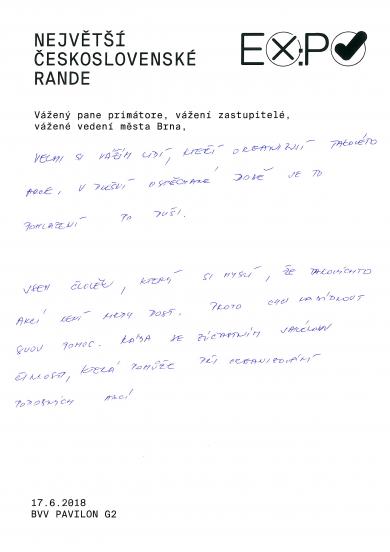 NEJVĚTŠÍ
ČESKOSLOVENSKÉ
RANDE
EXPO
Vážený pane primátore, vážení zastupitelé,
vážené vedení města Brna,
VELMI SI VÁŽÍM LIDÍ, KTEŘÍ ORGANIZUJÍ TAKOVÉTO
AKCE. V DNEŠNÍ USPĚCHANÉ DOBĚ JE TO
POHLAZENÍ PO DUŠI.
JSEM ČLOVĚK, KTERÝ SI MYSLÍ, ŽE TAKOVÝCHTO
AKCÍ NENÍ NIKDY DOST. PROTO CHCI NABÍDNOUT
SVOU POMOC. RÁDA SE ZÚČASTNÍM JAKÉKOLIV
ČINNOSTI, KTERÁ POMŮŽE PŘI ORGANIZOVÁNÍ
PODOBNÝCH AKCÍ
17.6.2018
BVV PAVILON G2